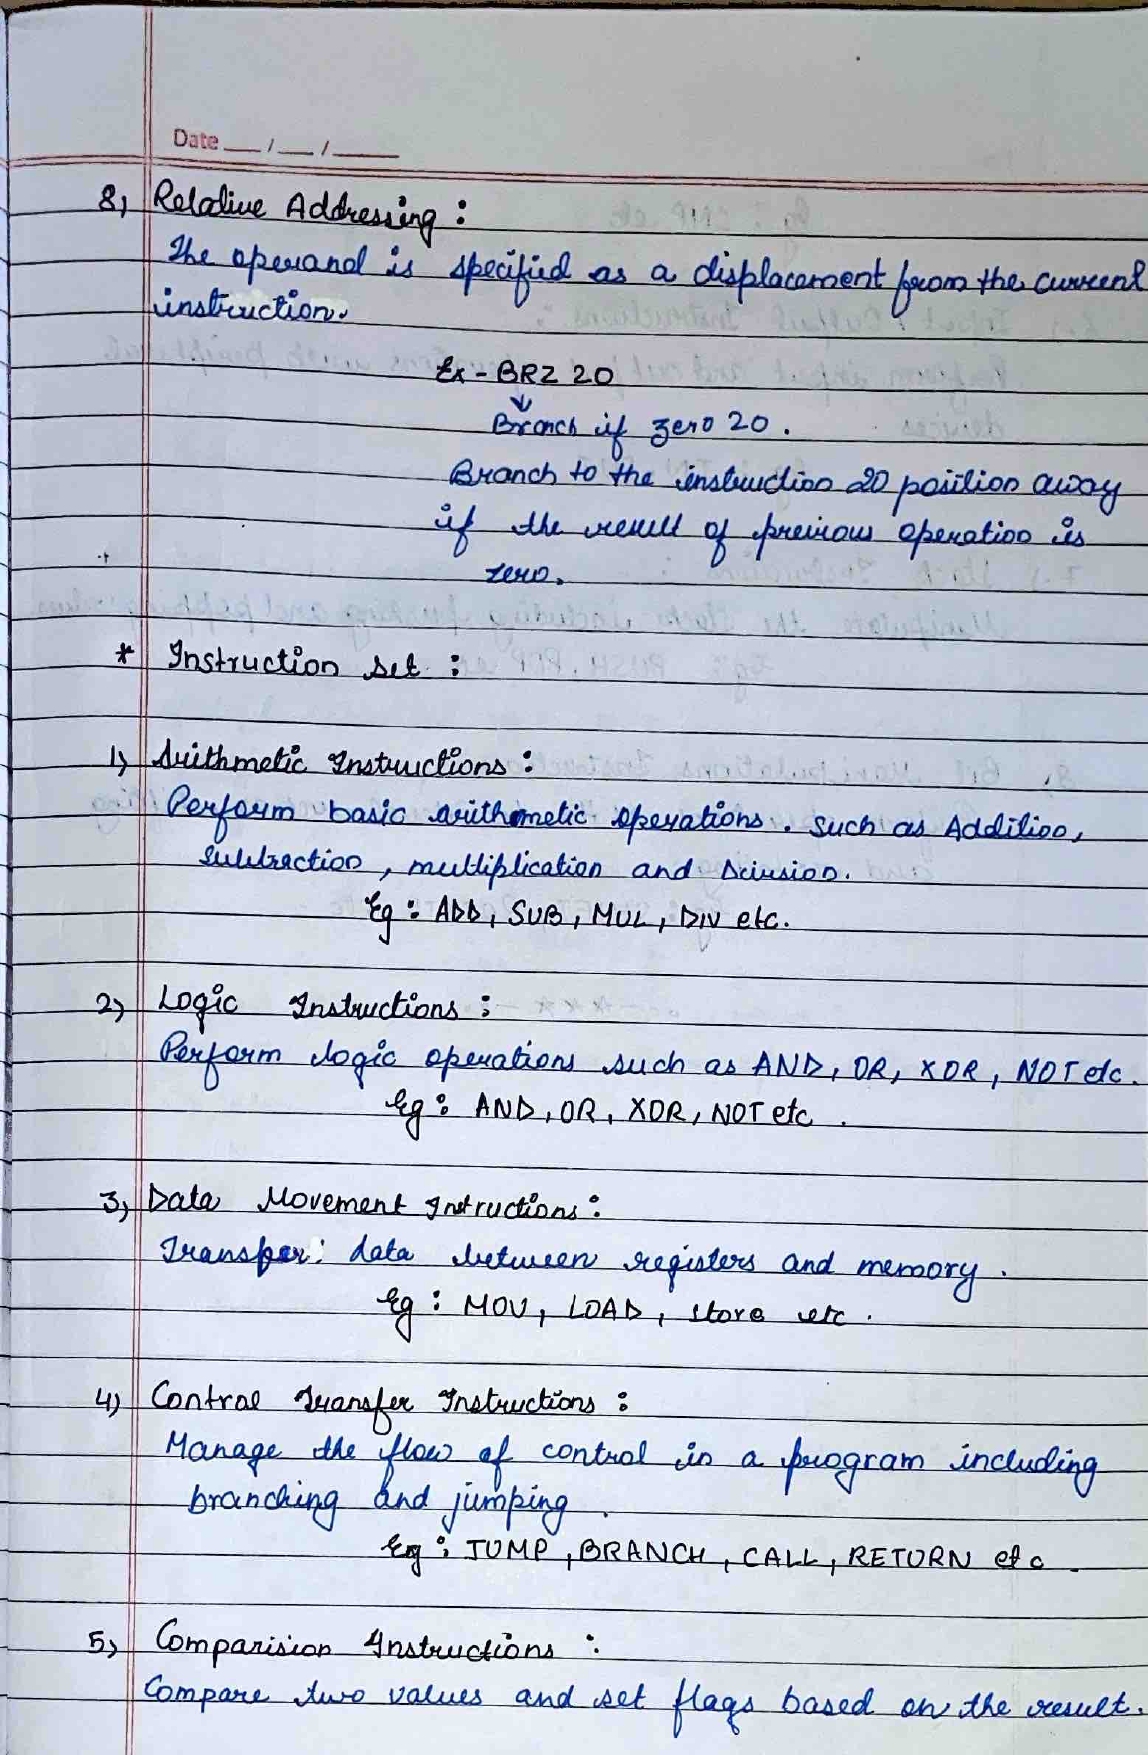 Date __ / __ / ____
8) Relative Addressing :
The operand is specified as a displacement from the current
instruction.
Ex - BRZ 20
↓
Branch if zero 20.
Branch to the instruction 20 position away
if the result of previous operation is
zero.
* Instruction set :
1) Arithmetic Instructions :
Perform basic arithmetic operations. Such as Addition,
subtraction, multiplication and Division.
Eg : ADD, SUB, MUL, DIV etc.
2) Logic Instructions :
Perform logic operations such as AND, OR, XOR, NOT etc.
Eg : AND, OR, XOR, NOT etc.
3) Data Movement Instructions :
Transfer: data between registers and memory.
Eg : MOV, LOAD, store etc.
4) Control Transfer Instructions :
Manage the flow of control in a program including
branching and jumping.
Eg : JUMP, BRANCH, CALL, RETURN etc.
5) Comparision Instructions :
Compare two values and set flags based on the result.